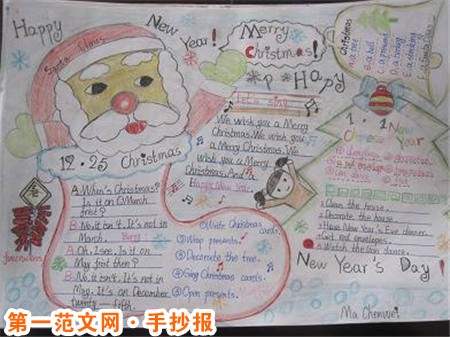 Happy New Year!
Merry
Christmas!
Santa Claus
Happy
Let's sing
We wish you a Merry
Christmas. We wish
you a Merry
Christmas. We
wish you a Merry
Christmas. And a
Happy New Year.
12.25 Christmas
A. When's Christmas?
Is it on March
first?
B. No, it isn't. It's not in
March.
A. Oh, I see. Is it on
May first then?
B. No, it isn't. It's not in
May. It is on December
twenty-fifth.
① Write Christmas
cards.
② Wrap presents.
③ Decorate the tree.
④ Sing Christmas cards.
⑤ Open presents.
firecrackers
Christmas
A. a tree
B. a bell
C. a present
E. a stocking
F. a Santa Claus
1.1 New
Chinese Year
Clean the house.
Decorate the house.
Have New Year's Eve dinner.
Get red envelopes.
Watch the lion dance.
New Year's Day!
Ma Chenwei
第一范文网·手抄报